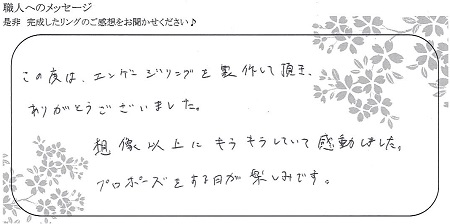 職人へのメッセージ
是非 完成したリングのご感想をお聞かせください♪
この度は、エンゲージリングを製作して頂き、
ありがとうございました。
想像以上にキラキラしていて感動しました。
プロポーズをする日が楽しみです。